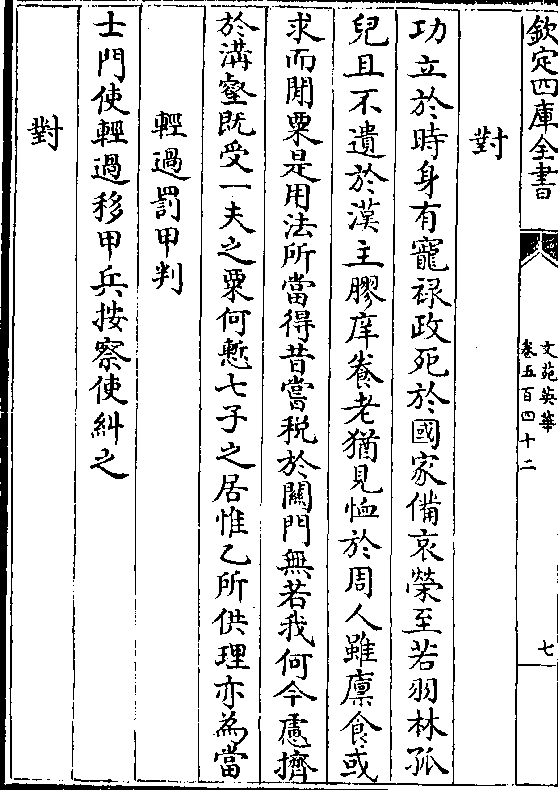 欽定四庫全書
文苑英華
卷五百四十二
七
對
功立於時身有寵禄政死於國家備哀榮至若羽林孤
兒且不遺於漢主膠庠養老猶見恤於周人雖廪食或
求而閒粟是用法所當得昔嘗税於關門無若我何今慮擠
於溝壑既受一夫之粟何慙七子之居惟乙所供理亦為當
輕過罰甲判
士門使輕過移甲兵按察使糾之
對